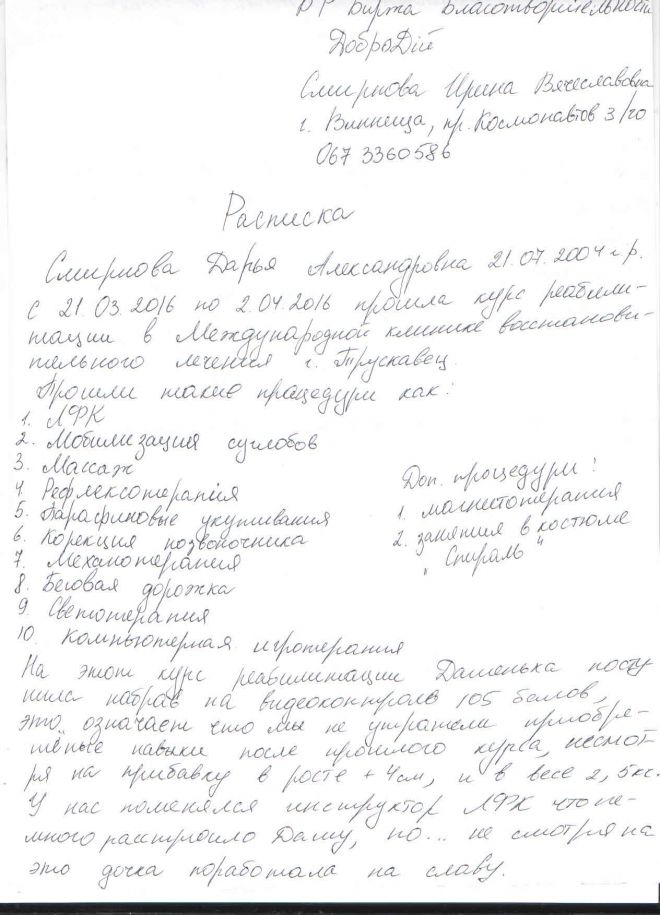 БФ Биржа Благотворительности
ДоброДій
Смирнова Ирина Вячеславовна
г. Винница, пр. Космонавтов 3/
067 3360586
Расписка
Смирнова Дарья Александровна 21.07.2004 г.р.
с 21.03.2016 по 2.04.2016 прошла курс реабили-
тации в Международной клинике восстанови-
тельного лечения г. Трускавец.
Прошли такие процедуры как:
1. ЛФК
2. Мобилизация суглобов
3. Массаж
4. Рефлексотерапия
5. Парафиновые укутывания
6. Корекция позвоночника
7. Механотерапия
8. Беговая дорожка
9. Светотерапия
10. Компьютерная игротерапия
Доп. процедуры:
1. магнетотерапия
2. занятия в костюме
"Спираль"
На этот курс реабилитации Дашенька посту
пила набрав на видеоконтроле 105 балов,
это означает что мы не утратили приобре-
теные навыки после прошлого курса, несмот-
ря на прибавку в росте + 4 см, и в весе 2,5 кг.
У нас поменялся инструктор ЛФК что не-
много расстроило Дашу, но... не смотря на
это дочка поработала на славу.